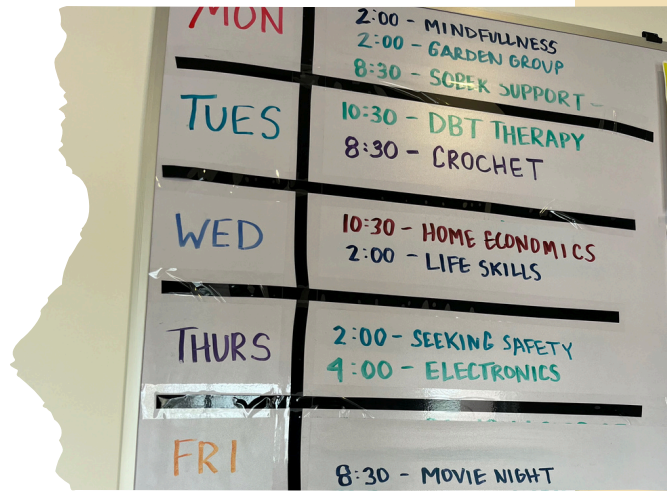 MON
2:00 - MINDFULLNESS
2:00 - GARDEN GROUP
8:30 - SOBEK SUPPORT -
TUES
10:30 - DBT THERAPY
8:30 - CROCHET
WED
10:30 - HOME ECONOMICS
2:00 - LIFE SKILLS
THURS
2:00 - SEEKING SAFETY
4:00 - ELECTRONICS
FRI
8:30 - MOVIE NIGHT